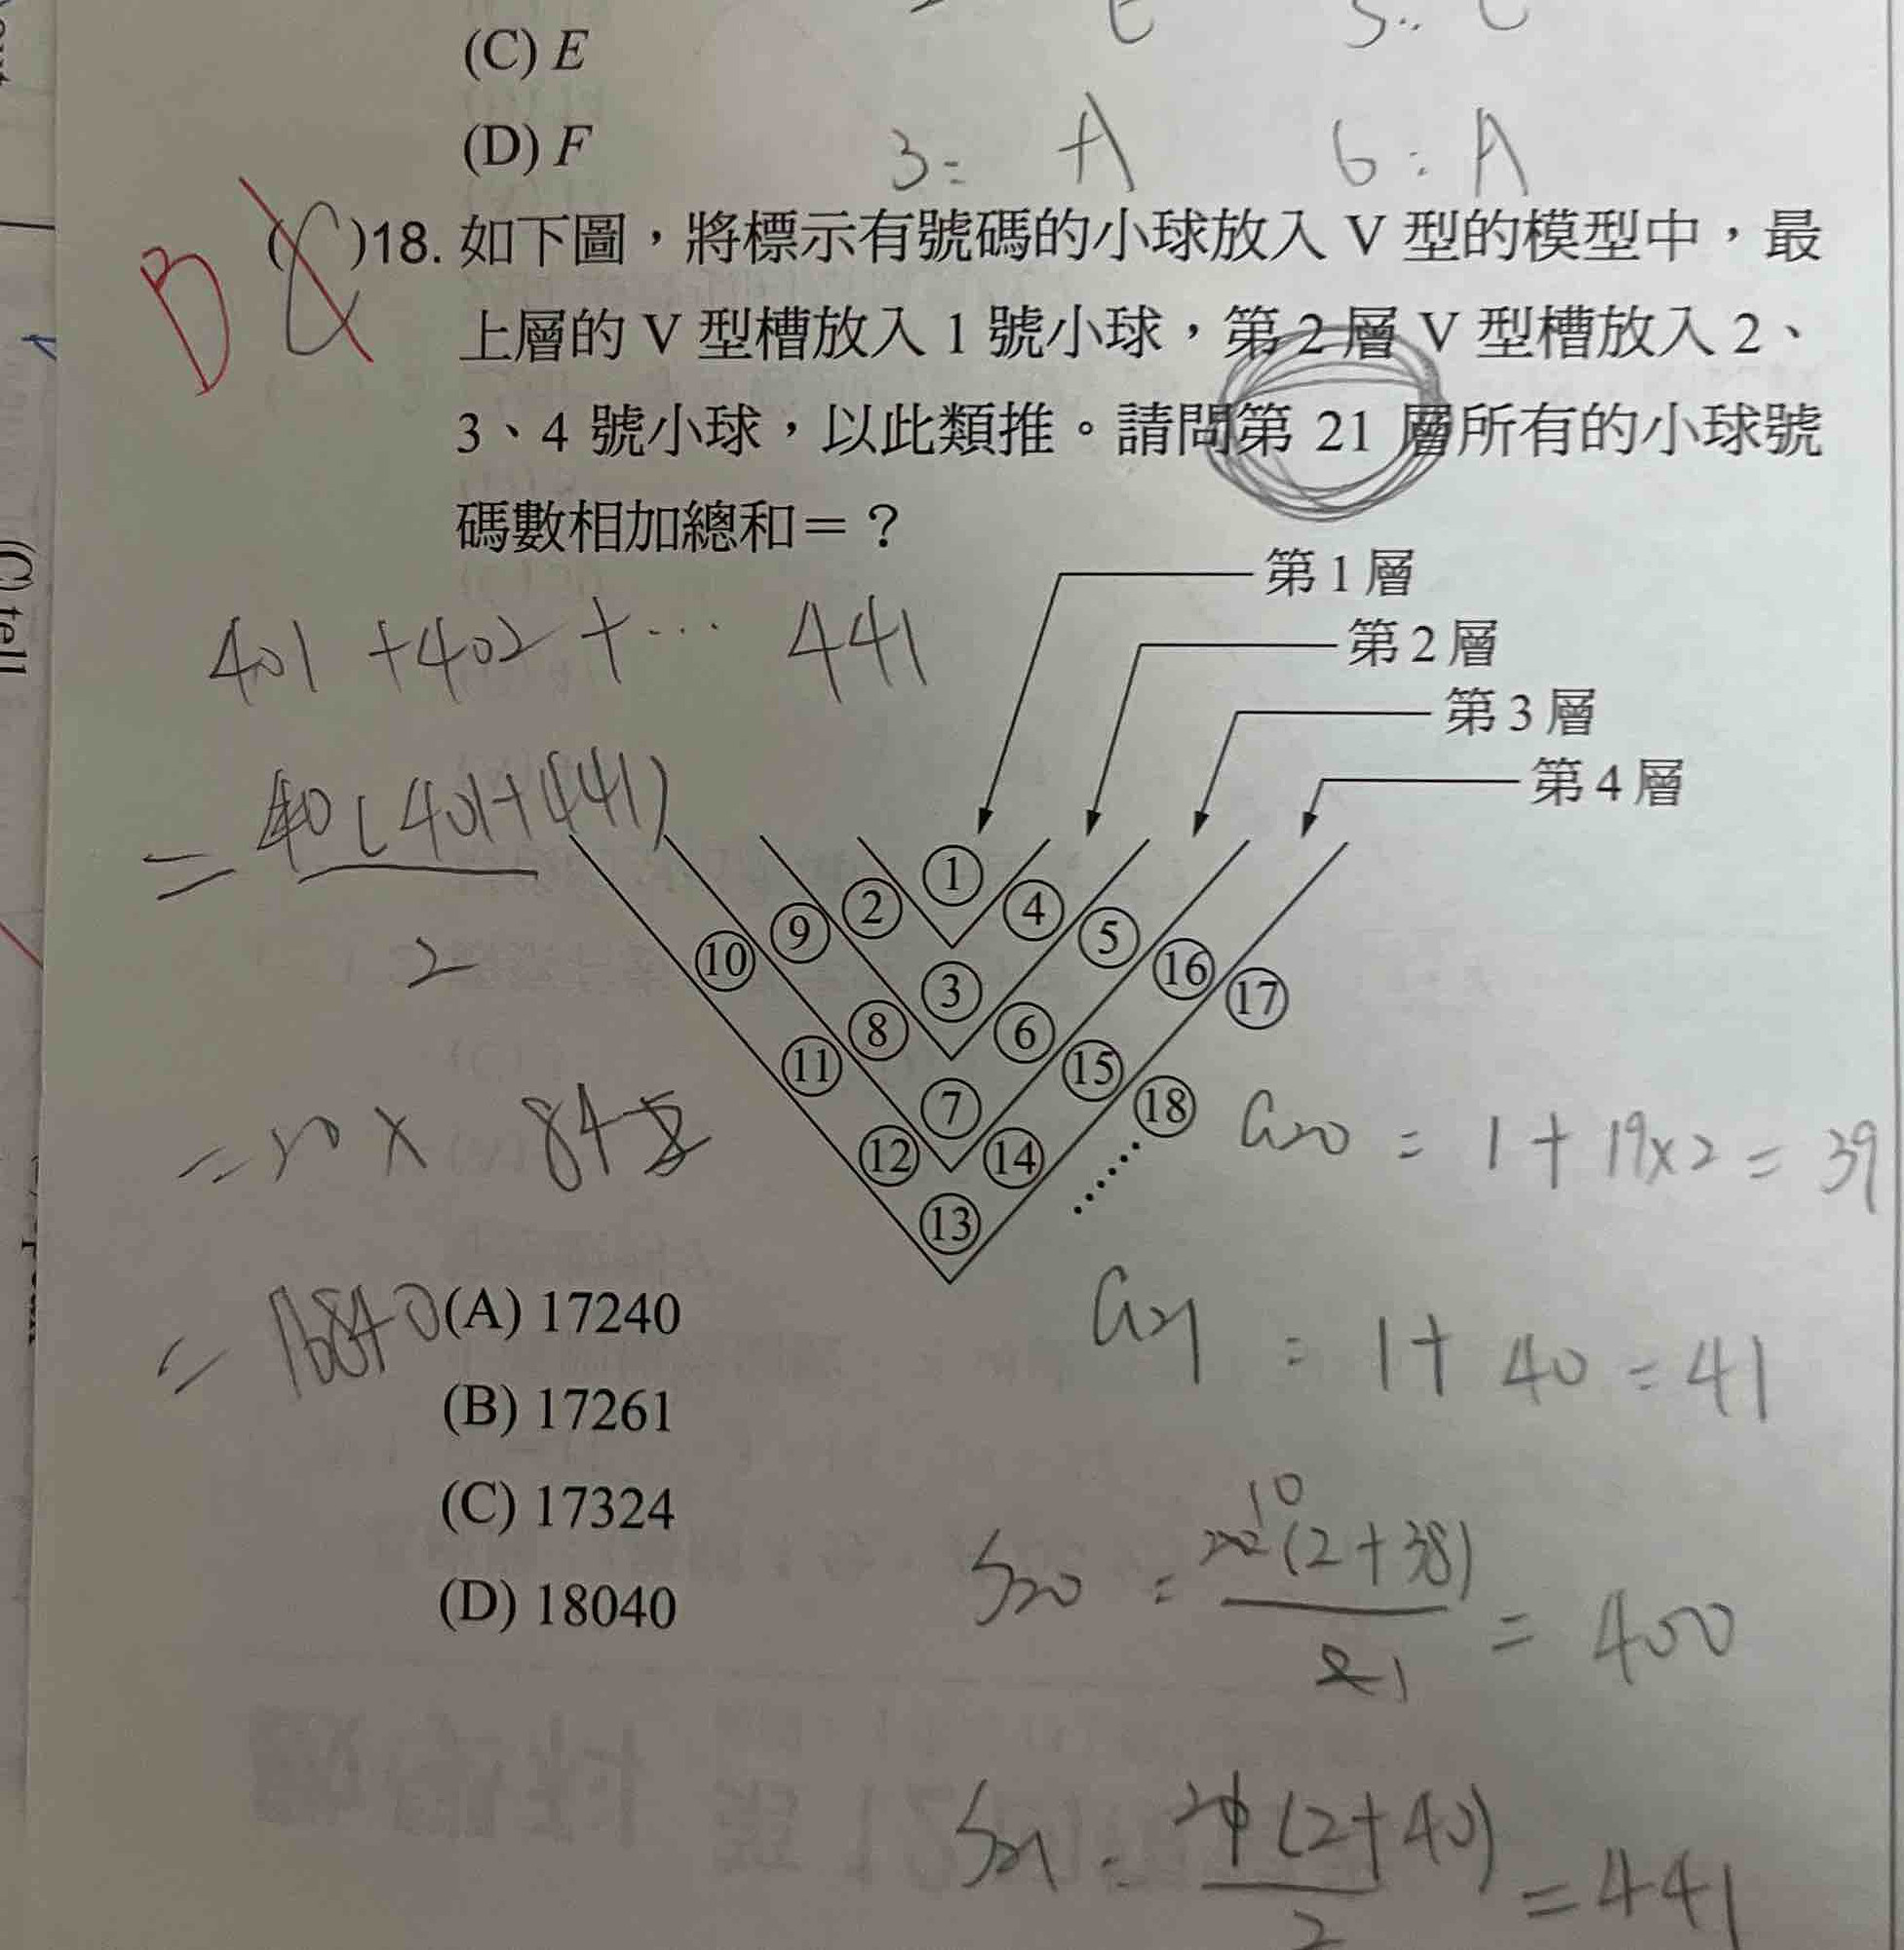 (C) E
(D) F
3: A
6: A
B
(C)18. 如下圖，將標示有號碼的小球放入 V 型的模型中，最
上層的 V 型槽放入 1 號小球，第 2 層 V 型槽放入 2、
3、4 號小球，以此類推。請問第 21 層所有的小球號
碼數相加總和＝？
第 1 層
第 2 層
第 3 層
第 4 層
401 + 402 + … 441
= 40(401+441)
2
= 20 × 842
= 16840
1
2
4
9
5
10
16
3
17
8
6
11
15
7
18
12
14
13
……
a20 = 1 + 19×2 = 39
a21 = 1 + 40 = 41
(A) 17240
(B) 17261
(C) 17324
(D) 18040
10
S20 = 20(2+38)
2 1
= 400
S21 = 21(2+40)
2
= 441
(C) tell